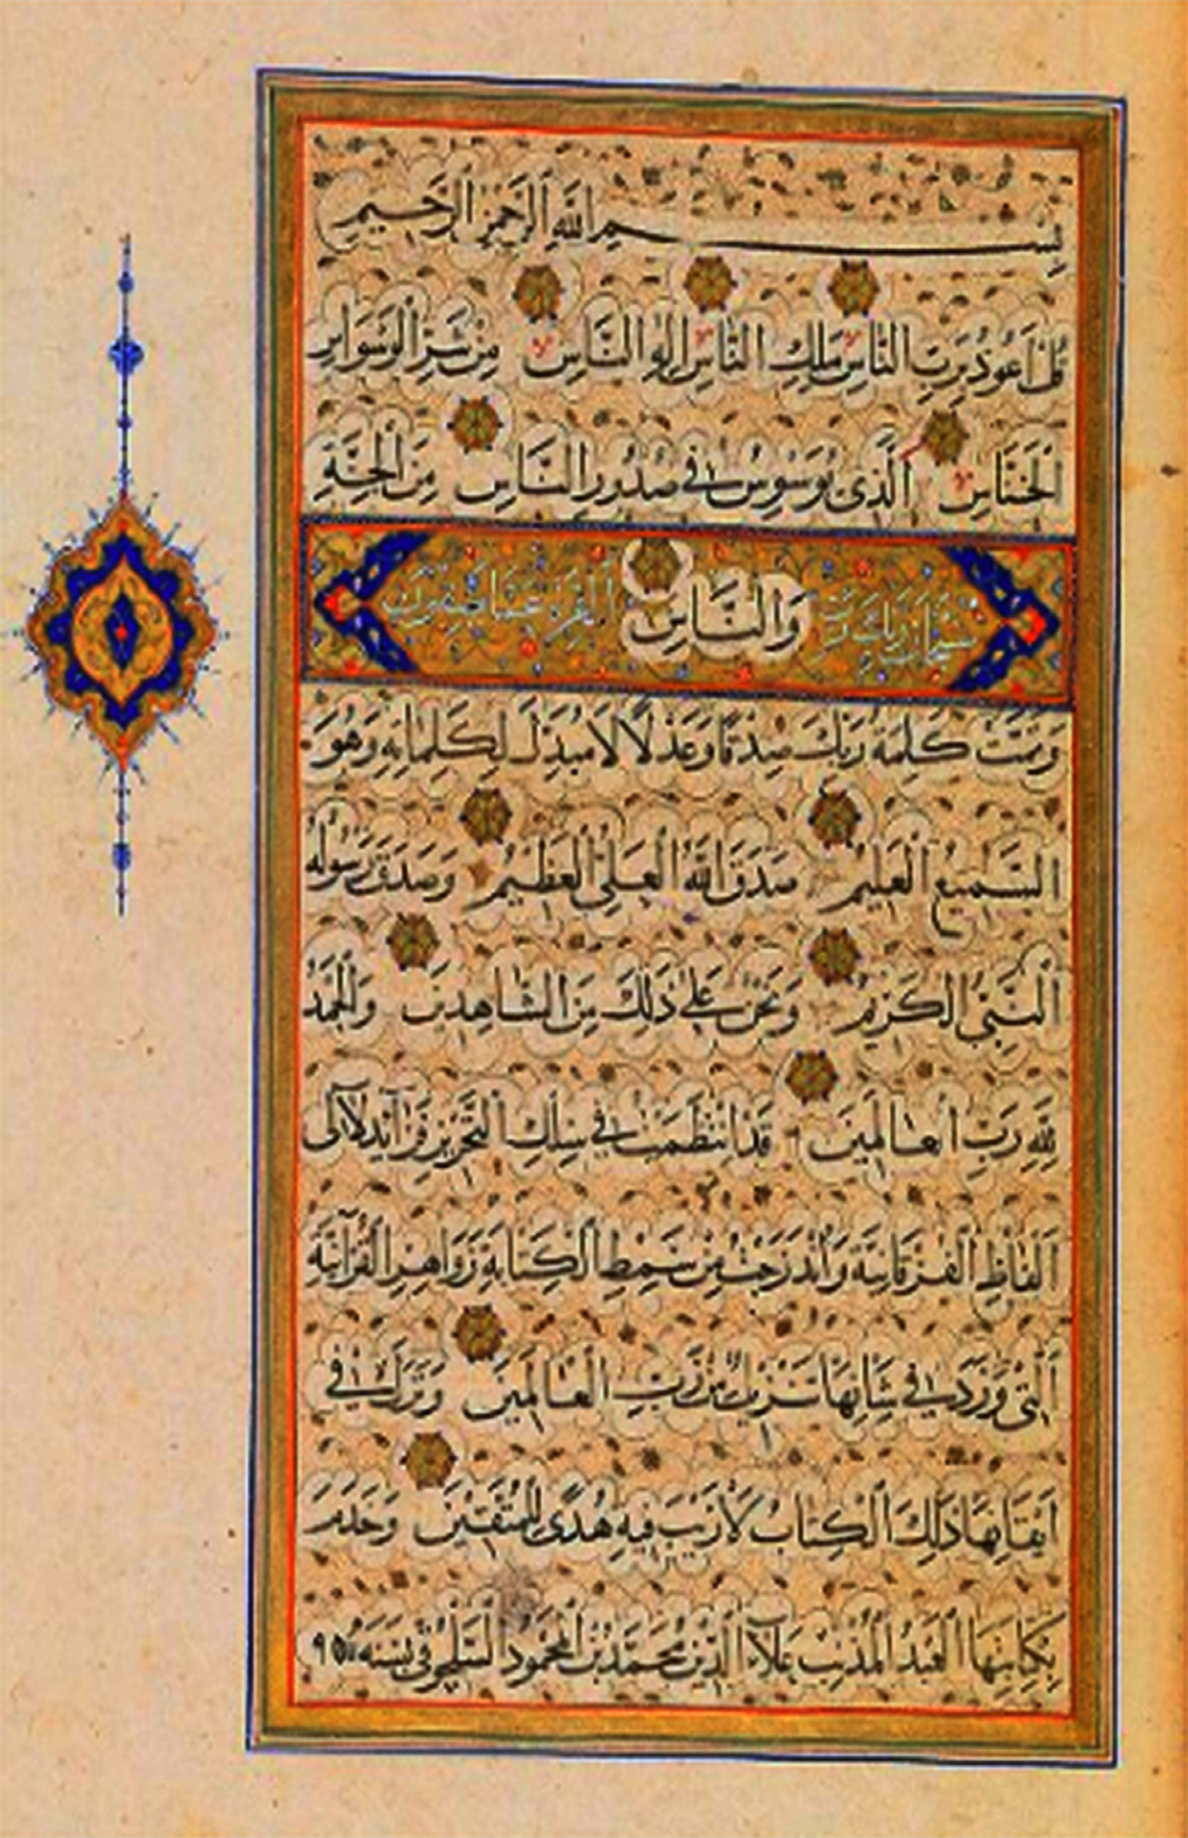 بسم الله الرحمن الرحيم
قُلْ اَعُوذُ بِرَبِّ النَّاسِ مَلِكِ النَّاسِ اِلٰهِ النَّاسِ مِنْ شَرِّ الْوَسْوَاسِ
اَلْخَنَّاسِ اَلَّذِى يُوَسْوِسُ فِى صُدُورِ النَّاسِ مِنَ الْجِنَّةِ
سبحان ربك رب وَالنَّاسِ العزة عما يصفون
وَتَمَّتْ كَلِمَةُ رَبِّكَ صِدْقًا وَعَدْلًا لَا مُبَدِّلَ لِكَلِمَاتِهِ وَهُوَ
السَّمِيعُ الْعَلِيمُ صَدَقَ اللّٰهُ الْعَلِىُّ الْعَظِيمُ وَصَدَقَ رَسُولُهُ
النَّبِىُّ الْكَرِيمُ وَنَحْنُ عَلٰى ذٰلِكَ مِنَ الشَّاهِدِينَ وَالْحَمْدُ
لِلّٰهِ رَبِّ الْعَالَمِينَ قَدِ انْتَظَمَتْ فِى سِلْكِ التَّحْرِيرِ فَرَائِدُ لَآلِى
اَلْفَاظِ الْفُرْقَانِيَّةِ وَانْدَرَجَتْ مِنْ سِمْطِ الْكِتَابَةِ زَوَاهِرُ الْقُرْآنِيَّةِ
اَلَّتِى وَرَدَ فِى شَانِهَا تَنْزِيلٌ مِنْ رَبِّ الْعَالَمِينَ وَنَزَلَ فِى
اِيقَانِهَا ذٰلِكَ الْكِتَابُ لَا رَيْبَ فِيهِ هُدًى لِلْمُتَّقِينَ وَخَدَمَ
بِكِتَابَتِهَا الْعَبْدُ الْمُذْنِبُ عَلَاءُ الدِّينِ مُحَمَّدُ بْنُ الْمَحْمُودِ السَّلْجُوقِى بِسَنَةِ